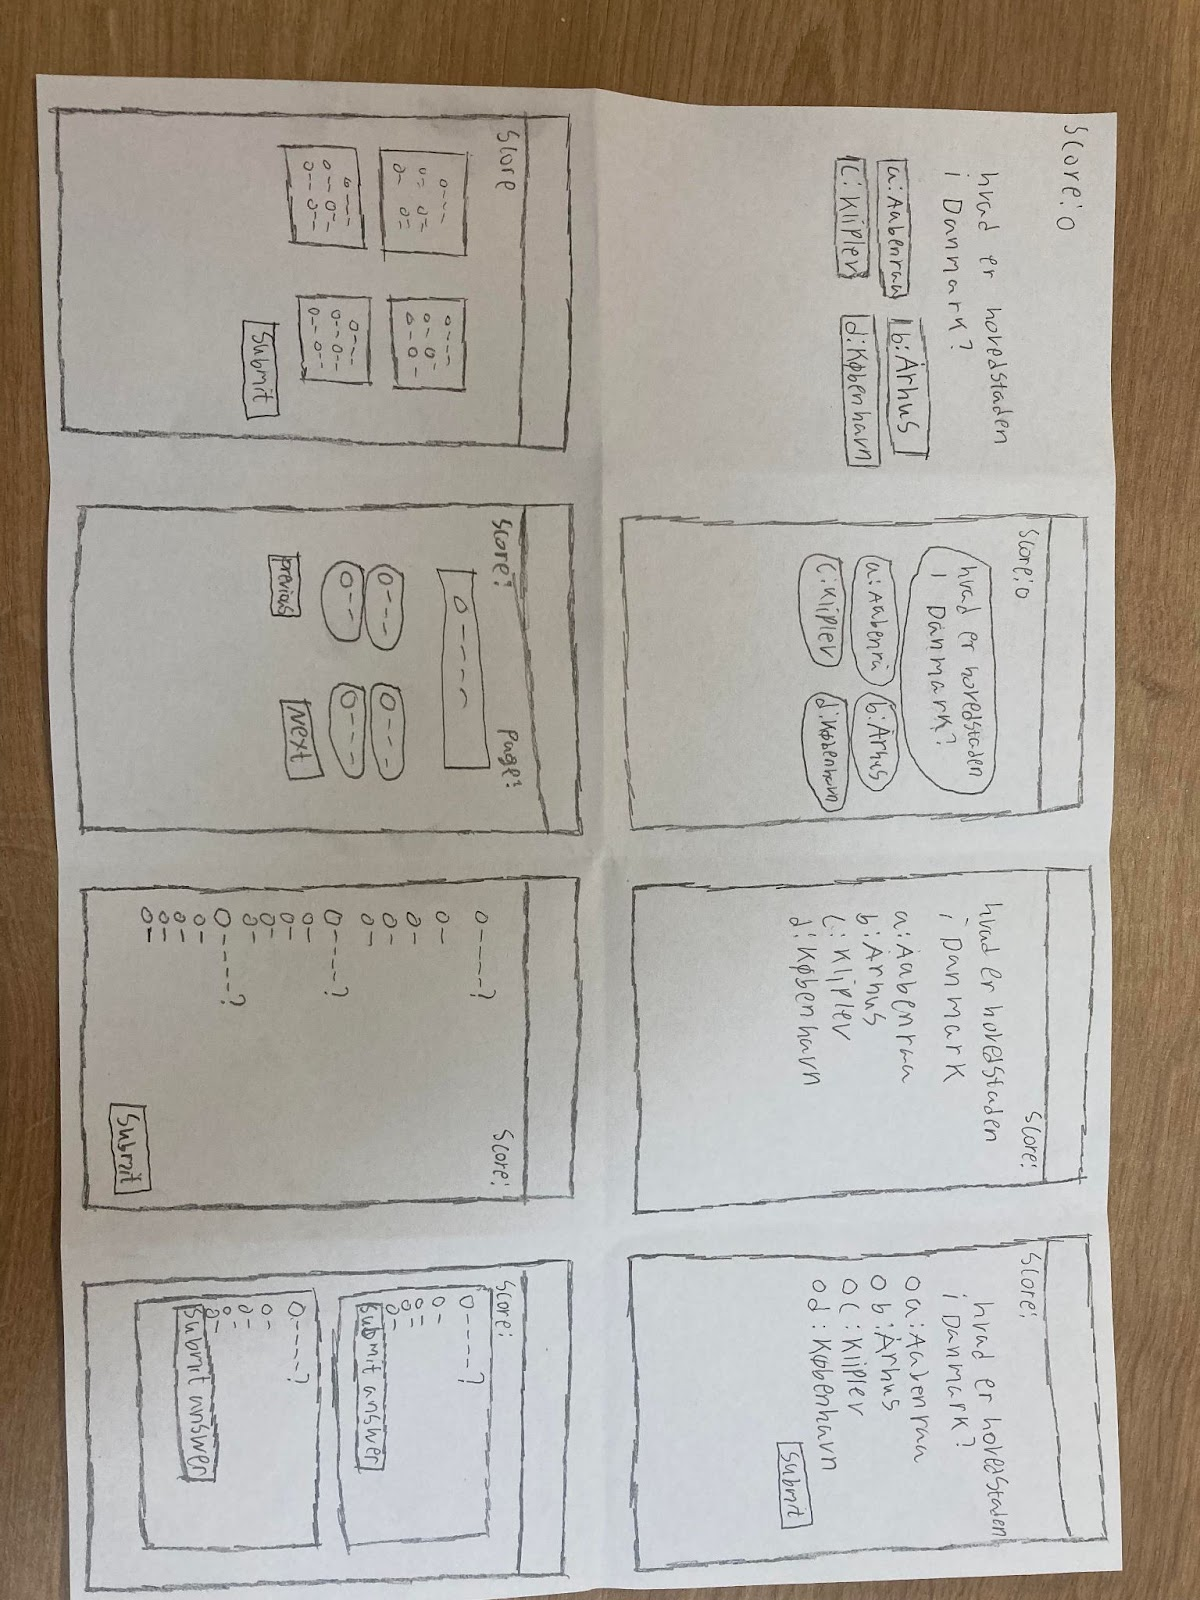 Score:0
hvad er hovedstaden
i Danmark?
a:Aabenraa b:Århus
c:Kliplev d:København
Score:0
hvad er hovedstaden
i Danmark?
a:Aabenrå b:Århus
c:Kliplev d:København
Score:
hvad er hovedstaden
i Danmark
a:Aabenraa
b:Århus
c:Kliplev
d:København
Score:
hvad er hovedstaden
i Danmark?
o a:Aabenraa
o b:Århus
o c:Kliplev
o d:København
Submit
Score
Submit
Score: Page:
previous Next
Score:
Submit
Score:
Submit answer
Submit answer